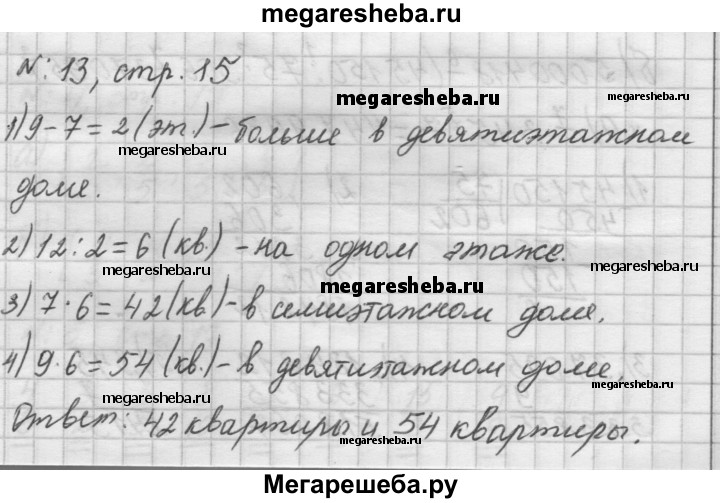 megaresheba.ru
№: 13, стр. 15
megaresheba.ru
1) 9 - 7 = 2 (эт.) - больше в девятиэтажном
megaresheba.ru
megaresheba.ru
доме.
2) 12 : 2 = 6 (кв.) - на одном этаже.
megaresheba.ru
megaresheba.ru
megaresheba.ru
3) 7 · 6 = 42 (кв.) - в семиэтажном доме.
4) 9 · 6 = 54 (кв.) - в девятиэтажном доме.
megaresheba.ru
megaresheba.ru
Ответ: 42 квартиры и 54 квартиры.
megaresheba.ru
Мегарешеба.ру